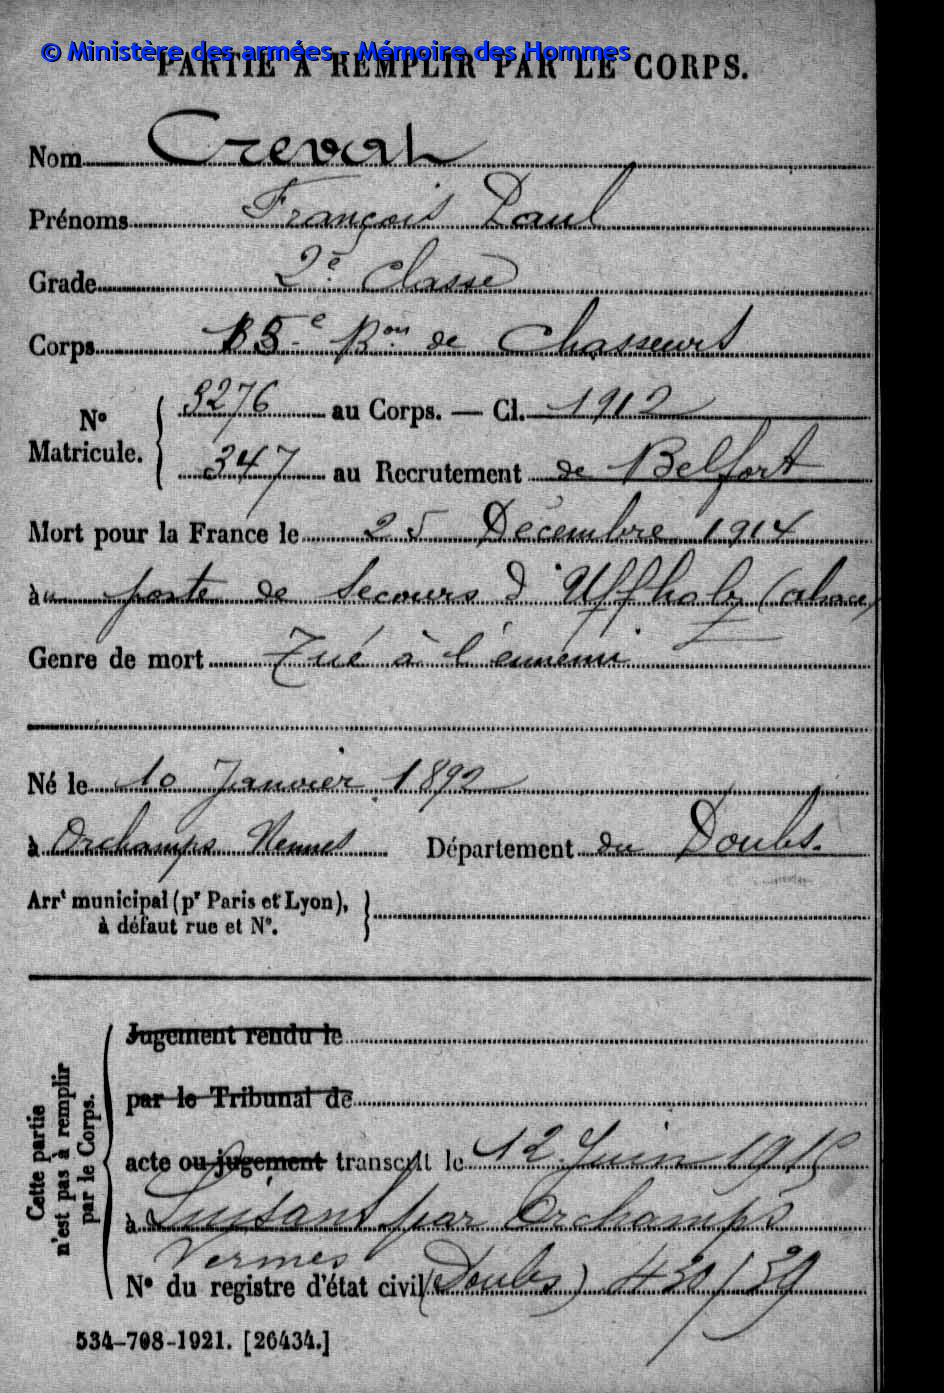 © Ministère des armées - Mémoire des Hommes
PARTIE À REMPLIR PAR LE CORPS.
Nom Crevat
Prénoms François Paul
Grade 2e classe
Corps 15e Bon de Chasseurs
No Matricule. { 3276 au Corps. — Cl. 1912
347 au Recrutement de Belfort
Mort pour la France le 25 Décembre 1914
àu poste de secours d'Uffholz (alsace)
Genre de mort Tué à l'ennemi
Né le 10 Janvier 1892
à Orchamps Vennes Département du Doubs.
Arrt municipal (pr Paris et Lyon),
à défaut rue et No.
Cette partie
n'est pas à remplir
par le Corps.
Jugement rendu le
par le Tribunal de
acte ou jugement transcrit le 12 Juin 1915
à Luisans par Orchamps
Vennes
No du registre d'état civil (Doubs) 430/39
534-708-1921. [26434.]